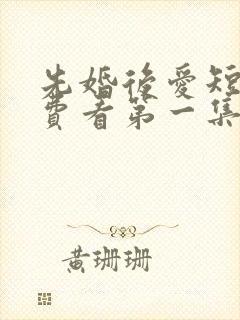 先婚後愛短
費看第一集
黃珊珊